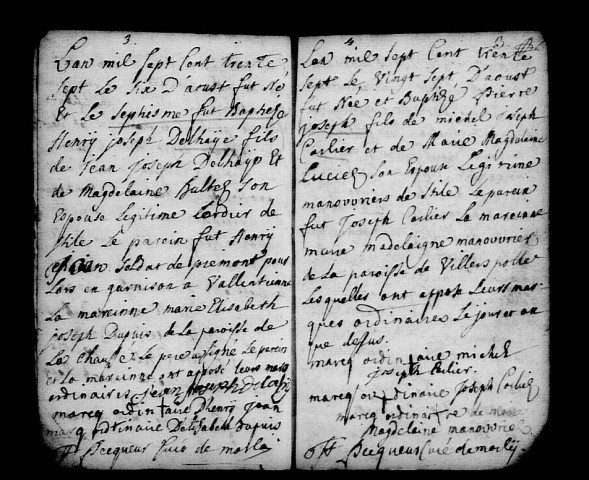 3.
Lan mil sept Cent trente
sept le six D'aoust fut Né
Et le sephiesme fut Baptisé
Henry joseph Delhaÿe fils
de Jean Joseph Delhaye Et
de Magdelaine Bultez Son
Espouse legitime Cordier de
stile Le parein fut Henry
soldat de piemont pour
Lors en garnison a Vallentienne
La mareinne marie Elisabeth
joseph Dupuis de la paroisse de
Le pere a signé Le parein
et La mareinne ont apposé leurs marq
ordinaires Jean joseph Delhay
marcq ordinaire D'henry Jean
marcq ordinaire D'elisabeth Dupuis
Becqueur Curé de
3.
Lan mil sept Cent trente
sept le Vingt sept D'aoust
fut Née et Baptizé Pierre
Joseph fils de michel joseph
Carlier et de Marie Magdelaine
Luciez Son Espouse Legitime
manouvriers de stile Le parein
fut Joseph Carlier La mareinne
marie madelaigne manouvrier
de La paroisse de Villers polle
Lesquelles ont apposé Leurs mar
ques ordinaires Le jour et an
que desus.
marcq ordinaire michel
Joseph Carlier.
marcq ordinaire Joseph Carlier
marcq ordinaire de marie
Magdelaine manouvrier
Becqueur Curé de